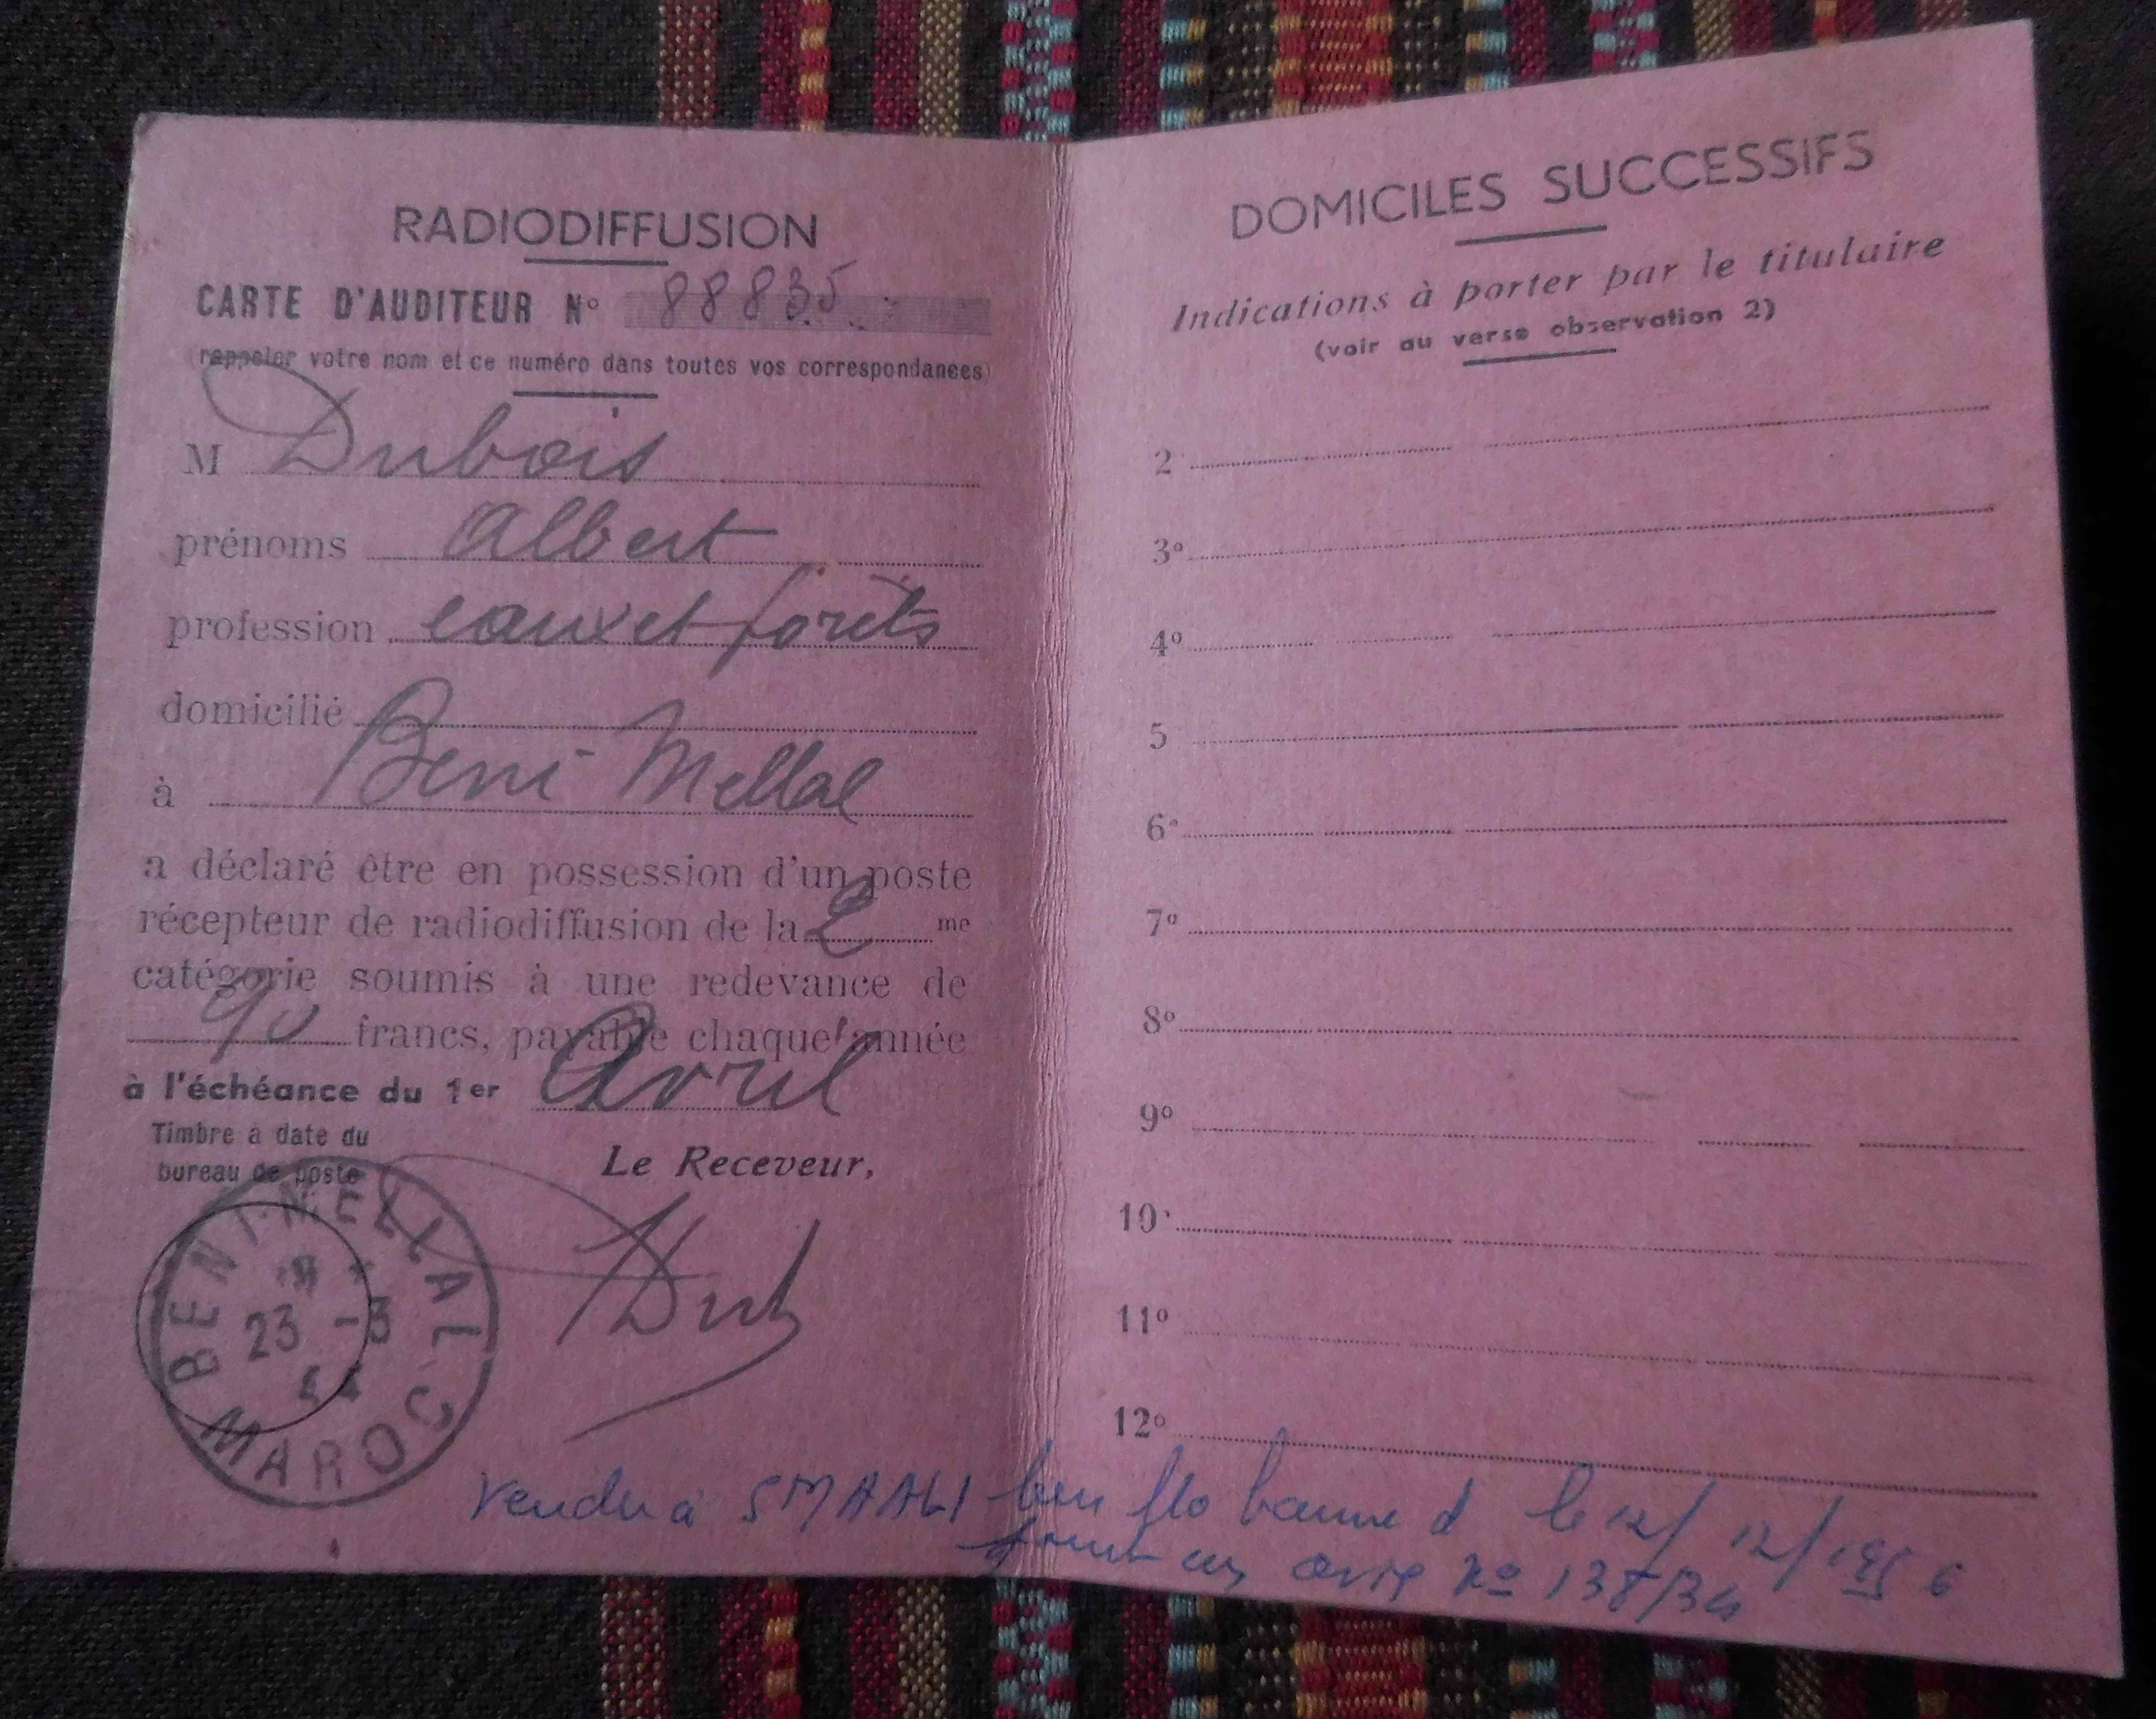 RADIODIFFUSION
CARTE D'AUDITEUR No 88835
(rappeler votre nom et ce numéro dans toutes vos correspondances)
M Dubois
prénoms Albert
profession eaux et forêts
domicilié
à Beni-Mellal
a déclaré être en possession d'un poste
récepteur de radiodiffusion de la 2 me
catégorie soumis à une redevance de
90 francs, payable chaque année
à l'échéance du 1er Avril
Timbre à date du
bureau de poste
Le Receveur,
BENI-MELLAL
23 -3
MAROC
DOMICILES SUCCESSIFS
Indications à porter par le titulaire
(voir au verso observation 2)
2
3º
4º
5
6º
7º
8º
9º
10º
11º
12º
Vendu à SMAALI ben le 12/12/1956
avis Nº